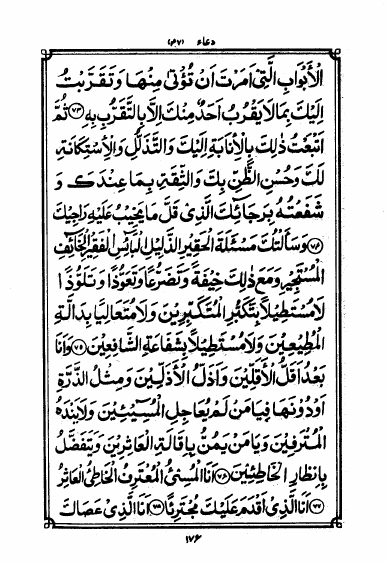 دعاء (۴۷)
الْأَبْوَابِ الَّتِي أَمَرْتَ أَنْ تُؤْتَىٰ مِنْهَا وَتَقَرَّبْتُ
إِلَيْكَ بِمَا لَا يَقْرُبُ أَحَدٌ مِنْكَ إِلَّا بِالتَّقَرُّبِ بِهِ ﴿۷۳﴾ ثُمَّ
أَتْبَعْتُ ذٰلِكَ بِالْإِنَابَةِ إِلَيْكَ وَالتَّذَلُّلِ وَالْاِسْتِكَانَةِ
لَكَ وَحُسْنِ الظَّنِّ بِكَ وَالثِّقَةِ بِمَا عِنْدَكَ وَ
شَفَعْتُهُ بِرَجَائِكَ الَّذِي قَلَّ مَا يَخِيبُ عَلَيْهِ رَاجِيكَ
﴿۷۴﴾ وَسَأَلْتُكَ مَسْئَلَةَ الْحَقِيرِ الذَّلِيلِ الْبَائِسِ الْفَقِيرِ الْخَائِفِ
الْمُسْتَجِيرِ وَمَعَ ذٰلِكَ خِيفَةً وَتَضَرُّعًا وَتَعَوُّذًا وَتَلَوُّذًا
لَا مُسْتَطِيلًا بِتَكَبُّرِ الْمُتَكَبِّرِينَ وَلَا مُتَعَالِيًا بِدَالَّةِ
الْمُطِيعِينَ وَلَا مُسْتَطِيلًا بِشَفَاعَةِ الشَّافِعِينَ ﴿۷۵﴾ وَأَنَا
بَعْدُ أَقَلُّ الْأَقَلِّينَ وَأَذَلُّ الْأَذَلِّينَ وَمِثْلُ الذَّرَّةِ
أَوْ دُونَهَا فَيَا مَنْ لَمْ يُعَاجِلِ الْمُسِيئِينَ وَلَا يَنْدَهُ
الْمُتْرَفِينَ وَيَا مَنْ يَمُنُّ بِإِقَالَةِ الْعَاثِرِينَ وَيَتَفَضَّلُ
بِإِنْظَارِ الْخَاطِئِينَ ﴿۷۶﴾ أَنَا الْمُسِيءُ الْمُعْتَرِفُ الْخَاطِئُ الْعَاثِرُ
﴿۷۷﴾ أَنَا الَّذِي أَقْدَمَ عَلَيْكَ مُجْتَرِئًا ﴿۷۸﴾ أَنَا الَّذِي عَصَاكَ
۱۷۶